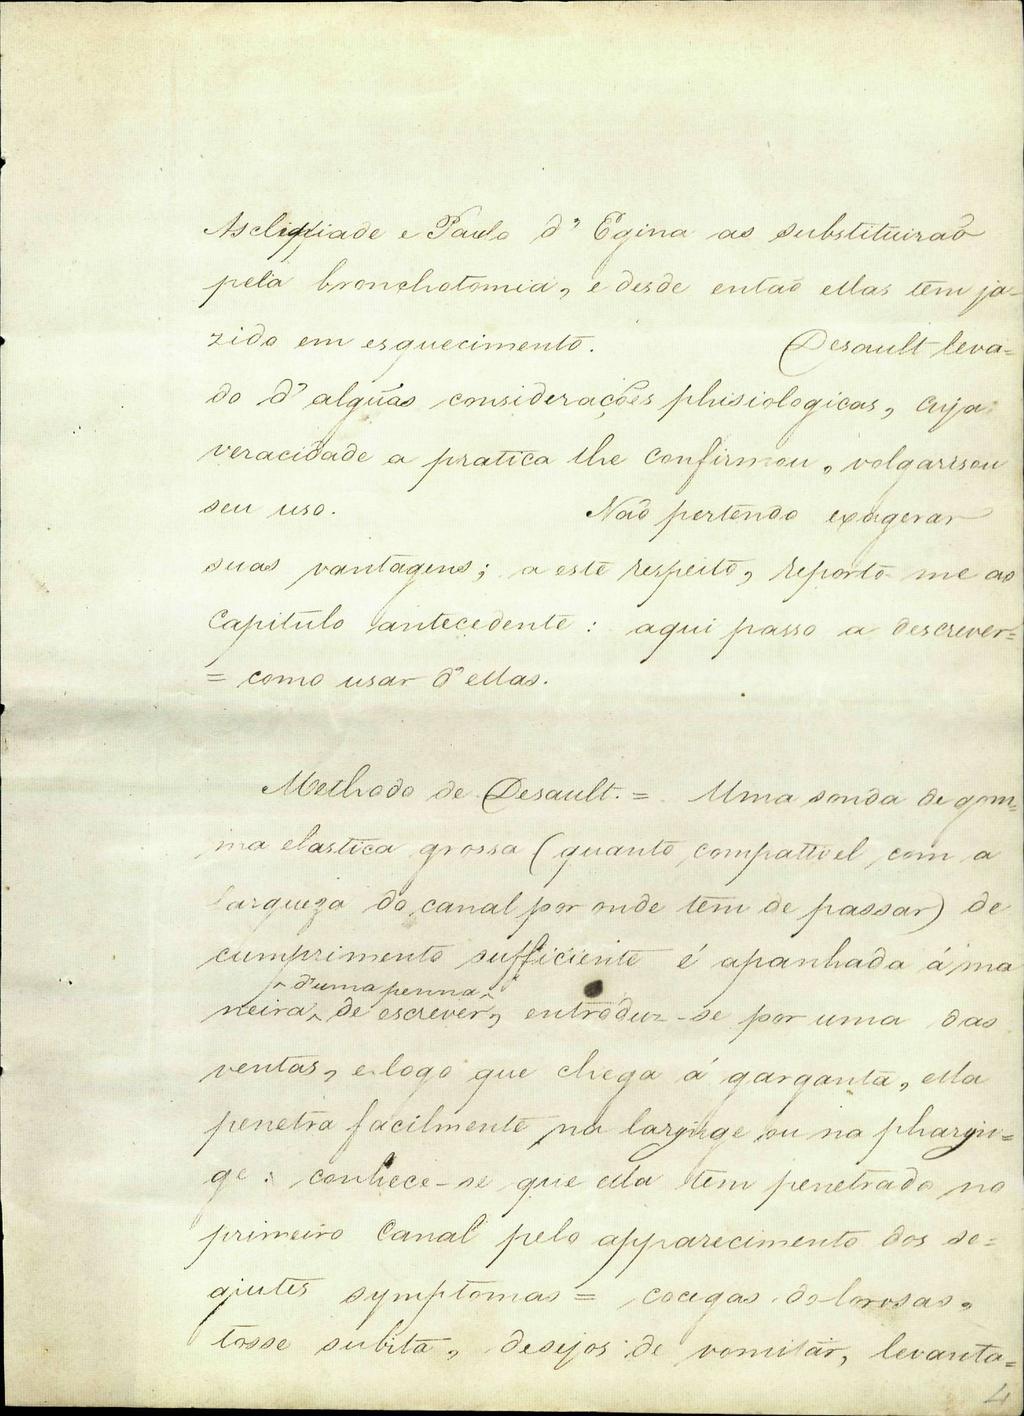 Asclipiade e Paulo d'Egina as substituirão
pela bronchotomia, e desde então ellas têm ja-
zido em esquecimento. Desault leva=
do d'algũas considerações phisiologicas, cuja
veracidade a pratica lhe confirmou, volgarisou
seu uso. Não pertendo exagerar
suas vantagens; a este respeito, reporto-me ao
Capitulo antecedente: aqui passo a descrever=
= como usar d'ellas.
Methodo de Desault. = Uma sonda de gom=
ma elastica grossa (quanto compativel com a
largueza do canal por onde tem de passar) de
cumprimento sufficiente é apanhada á ma
d'uma penna
neira de escrever, entroduz-se por uma das
ventas, e logo que chega á garganta, ella
penetra facilmente na laringe ou na pharin=
ge: conhece-se que ella tem penetrado no
primeiro Canal pelo apparecimento dos se=
guites symptomas = cocegas dolorosas,
tosse subita, desejos de vomitar, levanta=
4